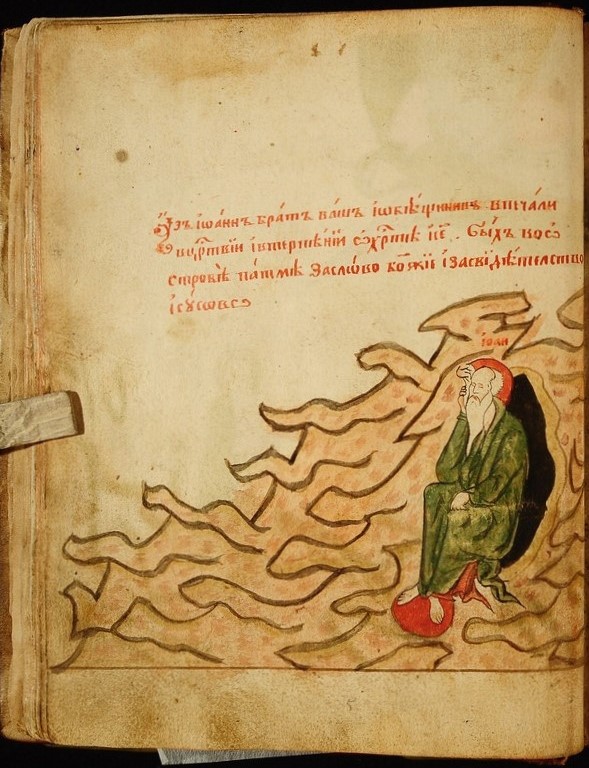 Азъ іѡа́ннъ бра́тъ ва́шъ іѡбщникъ впеча́ли
вцр҃твіи івтерпѣ́нїи ѡ҆хр҃тѣ і҃се . бы́хъ восо
стровѣ па́тмѣ заслѡво бж҃їе ізасвідѣтелство
ісу́сово
іѡан